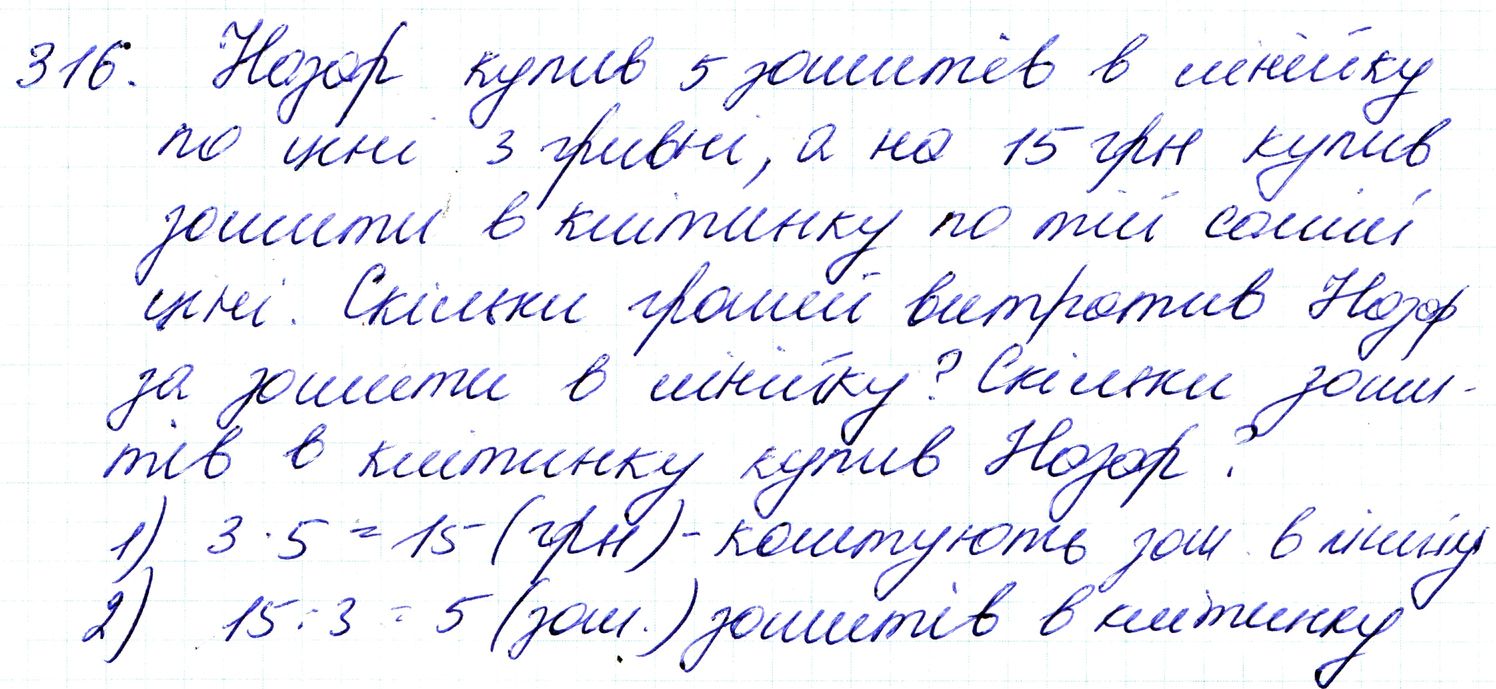 316. Назар купив 5 зошитів в лінійку
по ціні 3 гривні, а на 15 грн купив
зошити в клітинку по тій самій
ціні. Скільки грошей витратив Назар
за зошити в лінійку? Скільки зоши-
тів в клітинку купив Назар?
1) 3 · 5 = 15 (грн) - коштують зош. в лінійку
2) 15 : 3 = 5 (зош.) зошитів в клітинку